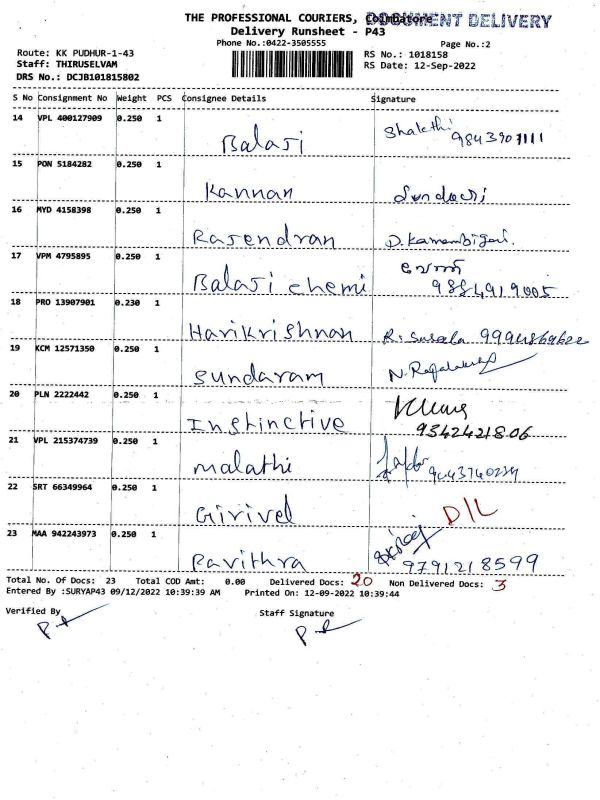 THE PROFESSIONAL COURIERS, Coimbatore
DOCUMENT DELIVERY
Delivery Runsheet - P43
Phone No.:0422-3505555
Page No.:2
Route: KK PUDHUR-1-43
RS No.: 1018158
Staff: THIRUSELVAM
RS Date: 12-Sep-2022
DRS No.: DCJB101815802
S No Consignment No Weight PCS Consignee Details Signature
14 VPL 400127909 0.250 1 Balaji Shakthi 9843901111
15 PON 5184282 0.250 1 Kannan
16 MYD 4158398 0.250 1 Rajendran
17 VPM 4795895 0.250 1 Balaji chemi 9884919005
18 PRO 13907901 0.230 1 Harikrishnan R. Suseela
19 KCM 12571350 0.250 1 Sundaram
20 PLN 2222442 0.250 1 Instinctive 9342421806
21 VPL 215374739 0.250 1 Malathi
22 SRT 66349964 0.250 1 Girivel D/L
23 MAA 942243973 0.250 1 Pavithra 9791218599
Total No. Of Docs: 23 Total COD Amt: 0.00 Delivered Docs: 20 Non Delivered Docs: 3
Entered By :SURYAP43 09/12/2022 10:39:39 AM Printed On: 12-09-2022 10:39:44
Verified By Staff Signature